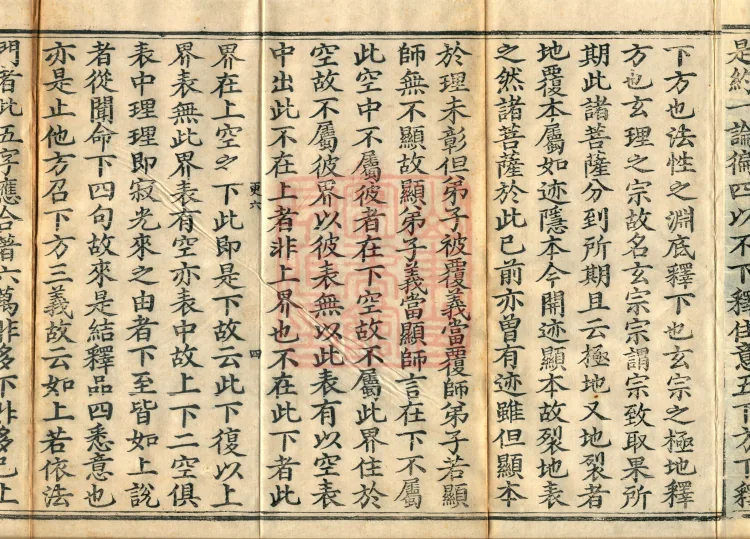 是經一論
下方也法性之淵底釋下也玄宗之極地釋
方也玄理之宗故名玄宗宗謂宗致取果所
期此諸菩薩分到所期且云極地又地裂者
地覆本屬如迹隱本今開迹顯本故裂地表
之然諸菩薩於此已前亦曾有迹雖但顯本
於理未彰但弟子被覆義當覆師弟子若顯
師無不顯故顯弟子義當顯師言在下不屬
此空中不屬彼者在下空故不屬此界住於
空故不屬彼界以彼表無以此表有以空表
中出此不在上者非上界也不在此下者此
更六
四
界在上空之下此即是下故云此下復以上
界表無此界表有空亦表中故上下二空俱
表中理理即寂光來之由者下至皆如上說
者從聞命下四句故來是結釋品四悉意也
亦是止他方召下方三義故云如上若依法
門者此五字應合著六萬非多下非多已上